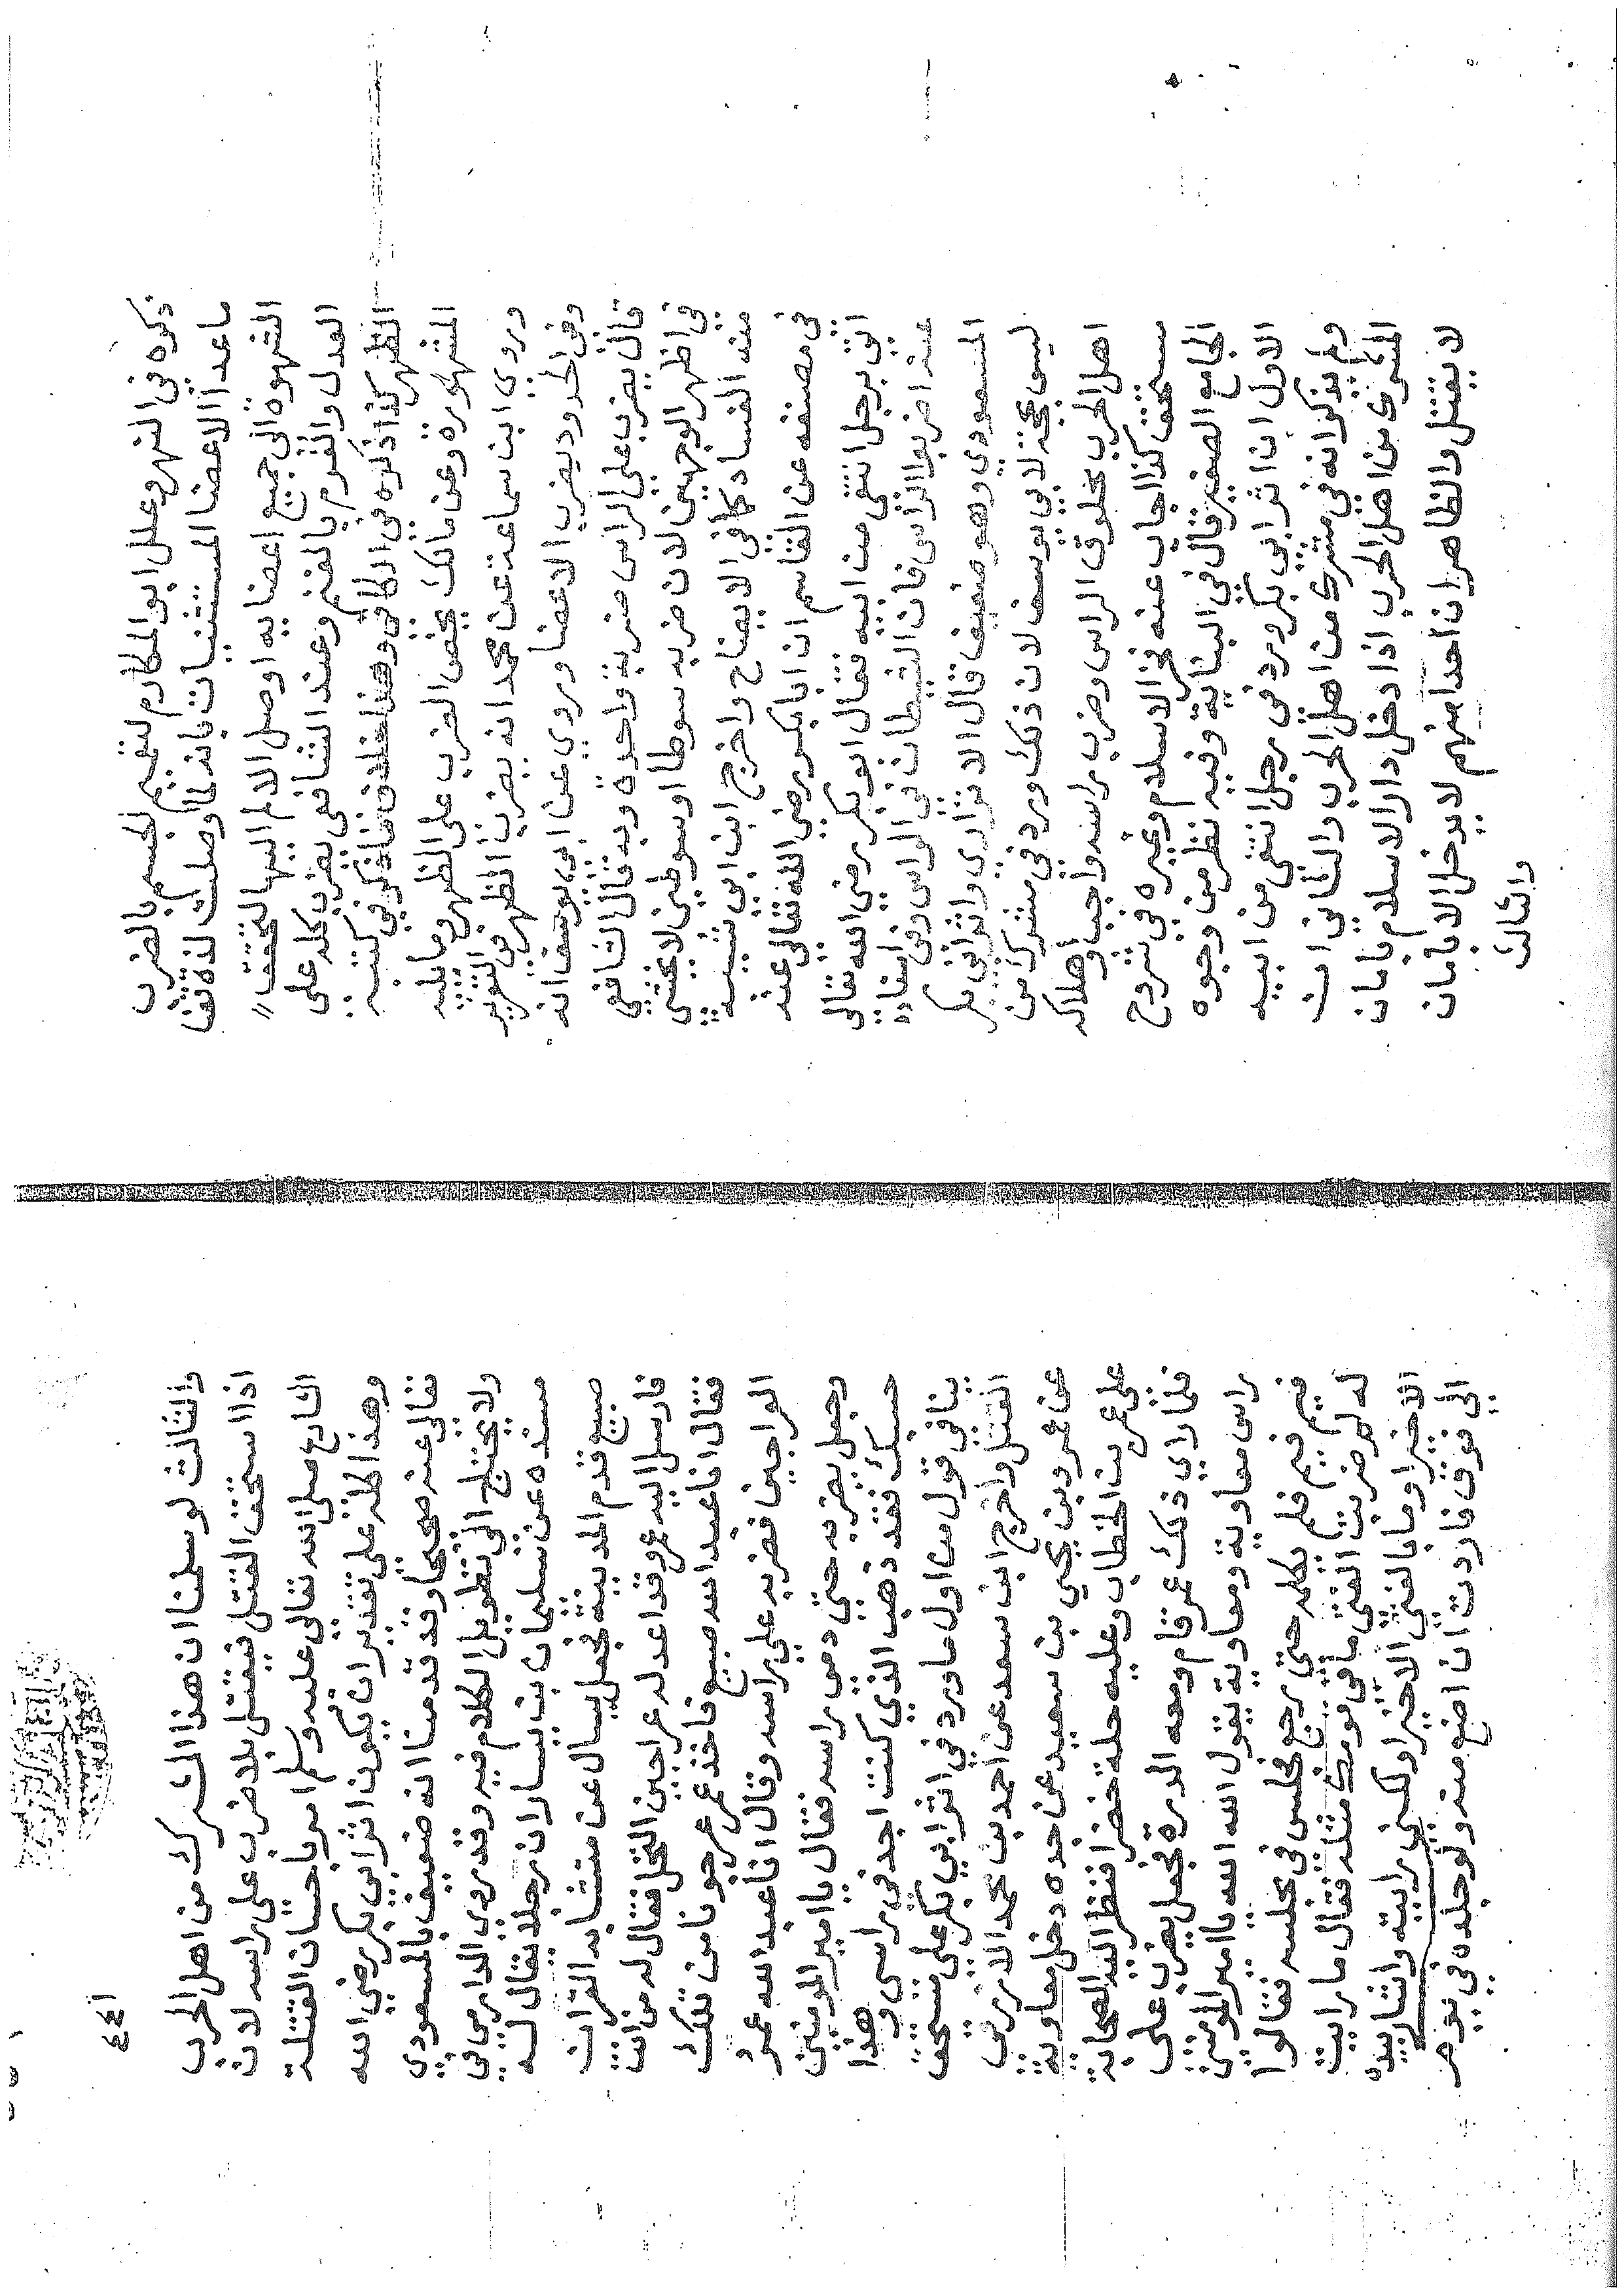 ذكره في النهر وعلل ابو المكارم لتعميم الجسم بالضرب
ما عدا الاعضا المستثنيات بانه لما وصلت لذة
الشهوة الى جميع اعضايه اوصل الالم اليها لتحقق
العدل والقوم بالغنم وعند الشافعي يضرب كله على
الظهر كذا ذكره في الكافي وهذا خلاف ما ذكر في كتبه
المشهورة وعن مالك يخص الضرب على الظهر وما يليه
وروي ابن سماعة عن محمد انه يضرب الظهر في التعزير
وفي الحدود يضرب الاعضا وروي عن ابي يوسف انه
قال يضرب على الراس ضربة واحدة وبه قال الشافعي
في اظهر الوجهين لان ضربه سوطا او سوطين لا يخشى
منه الفساد كما في الايضاح واخرج ابن ابي شيبة
في مصنفه عن القاسم ان ابا بكر رضي الله تعالى عنه
اتي برجل انتفى من ابيه فقال ابو بكر رضي الله تعالى
عنه اضربوا الراس فان الشيطان في الراس وفي اسناده
المسعودي وهو ضعيف قال الاترازي واثر ابي بكر
ليس بحجة لابي يوسف لان ذلك ورد في مشرك من
اهل الحرب محلوق الراس وضرب راسه واجب واهلاكه
مستحق كذا اجاب عنه فخر الاسلام وغيره في شروح
الجامع الصغير قال في البناية وفيه نظر من وجوه
الاول ان اثر ابي بكر ورد في رجل انتفى من ابيه
ولم يذكر انه في مشرك من اهل الحرب والثاني ان
المشرك من اهل الحرب اذا دخل دار الاسلام بامان
لا يقتل والظاهر ان احدا منهم لا يدخل الا بامان
والثالث
٤٤١
والثالث لو سلمنا ان هذا المشرك من اهل الحرب
اذا استحق القتل فيقتل بلا ضرب على راسه لان
الشارع صلى الله تعالى عليه وسلم امر باحسان القتلة
وهذا كله على تقدير ان يكون اثر ابي بكر رضي الله
تعالى عنه صحيحا وقد قدمنا انه ضعيف بالمسعودي
ولا يحتاج الى تطويل الكلام فيه وقد روي الدارمي في
مسنده عن سليمان بن يسار ان رجلا يقال له
صبيغ قدم المدينة فجعل يسال عن متشابه القران
فارسل اليه عمر وقد اعد له عراجين النخل فقال له من انت
فقال انا عبد الله صبيغ فاخذ عمر عرجونا من تلك
العراجين فضربه على راسه وقال انا عبد الله عمر
وجعل يضربه حتى دمي راسه فقال يا امير المومنين
حسبك فقد ذهب الذي كنت اجد في راسي وهذا
ينافي قول من اول ما ورد في اثر ابي بكر على مستحق
القتل واخرج ابن سعد عن احمد بن محمد الازرقي
عن عمرو بن يحيى بن سعيد عن جده دخل معاوية
على عمر بن الخطاب وعليه حلة خضرا فنظر اليه الصحابة
فلما راي ذلك عمر قام ومعه الدرة فجعل يضرب على
راس معاوية ومعاوية يقول الله الله يا امير المومنين
فيم فيم فلم يكلمه حتى رجع فجلس في مجلسه فقالوا
له لم ضربت الفتى ما في قومك مثله فقال ما رايت
الا خيرا وما بالفتى الا خيرا ولكني رايته واشار بيده
الى فوق فاردت ان اضع منه ولو جلده في يوم